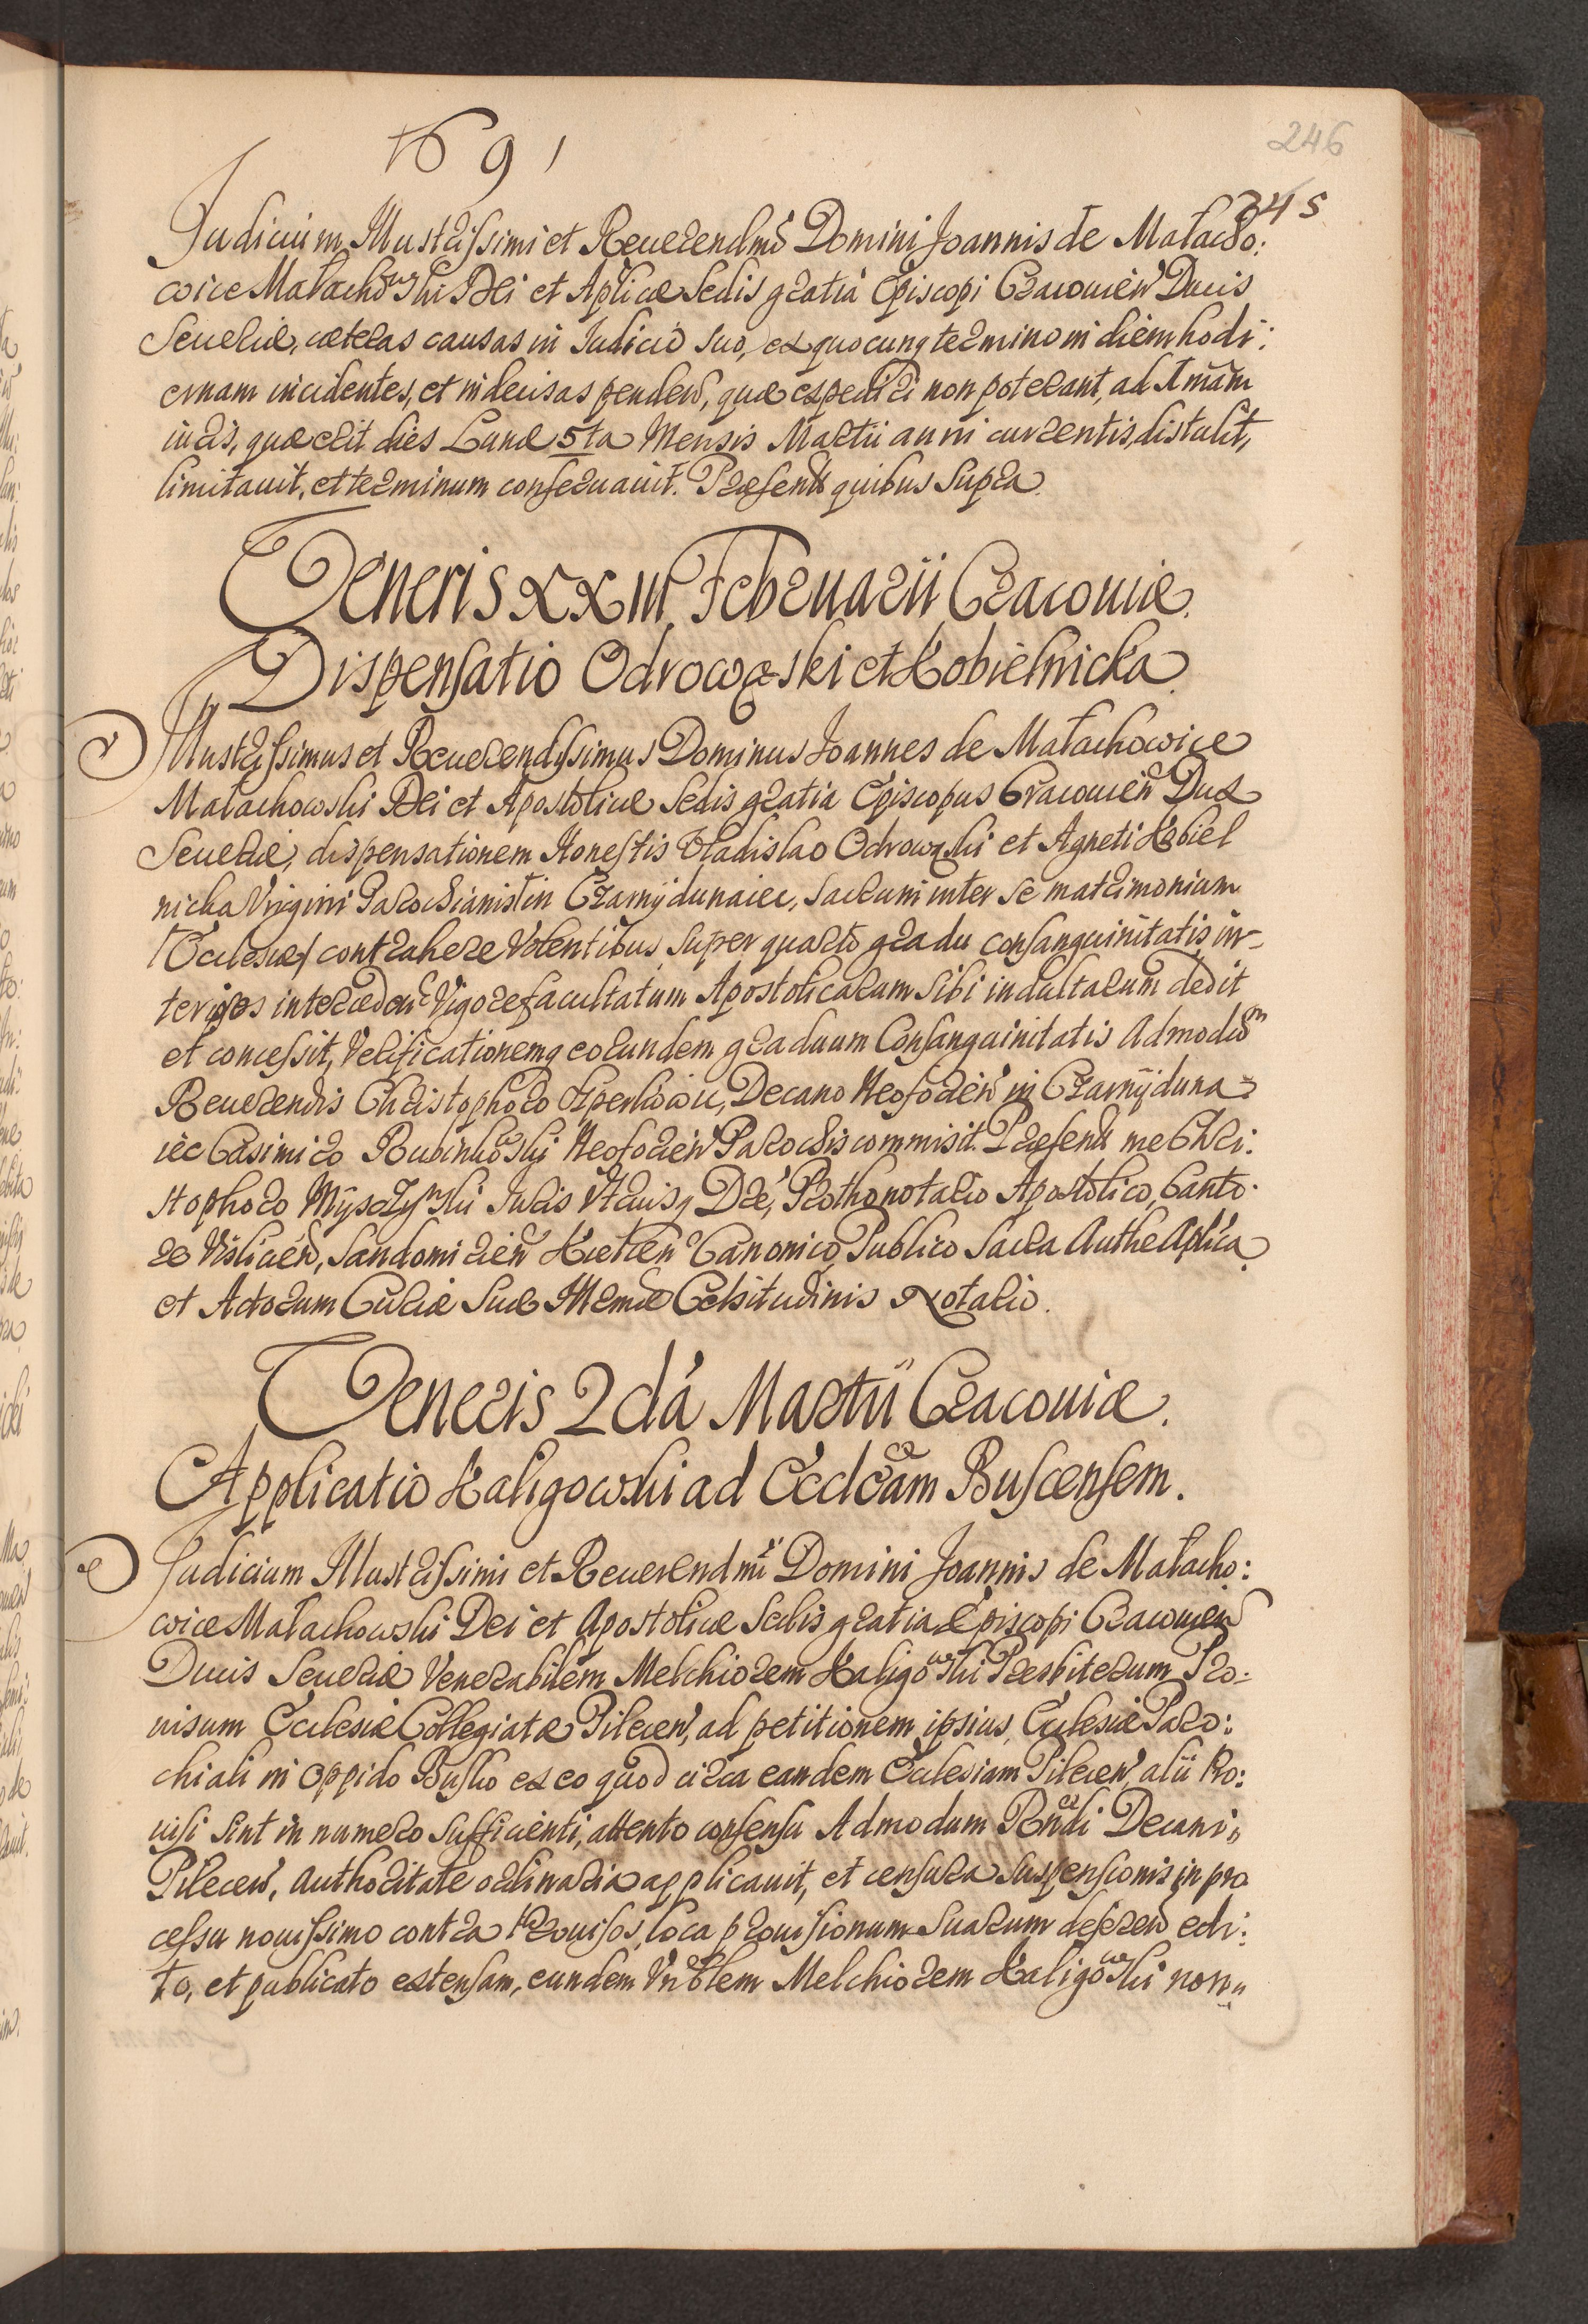 1691
246
245
Judicium Illustrissimi et Reuerendmi Domini Joannis de Małacho:
wice Małachowski Dei et Aplicæ Sedis gratia Episcopi Cracouien Ducis
Seueriæ, cæteras causas in Judicio suo, ex quocunq termino in diem hodi:
ernam incidentes, et indecisas penden, quæ expediri non poterant, ad Amam
iuris, quæ erit dies Lunæ 5ta Mensis Martii anni currentis, distulit,
limitauit, et terminum conseruauit. Præsentt quibus supra.
Veneris XXIII Februarii Cracouiæ.
Dispensatio Odrowąski et Kobielnicka.
Illustrissimus et Reuerendissimus Dominus Joannes de Małachowice
Małachowski Dei et Apostolicæ Sedis gratia Episcopus Cracouien Dux
Seueriæ, dispensationem Honestis Vladislao Odrowąski et Agneti Kobiel
nicka Virgini Parochianis in Czarnÿdunaiec, Sacrum inter se matrimonium
Ecclesiæ contrahere Volentibus super quarto gradu consanguinitatis in-
ter ipsos interceden Vigore facultatum Apostolicarum Sibi indultarum dedit
et concessit, Verificationemq eorundem graduum Consanguinitatis Admodum
Reuerendis Christophoro Decano Neoforien in Czarnÿduna
iec Casimiro Neoforien Parochis commisit. Præsentt me Chri:
stophoro Juris Vtriusq Dre, Prothonotario Apostolico, Canto-
re Vislicien, Sandomirien Kielcen Canonico, Publico Sacra Authe Aplica
et Actorum Curiæ Suæ Illrmæ Celsitudinis Notario.
Veneris 2da Martii Cracouiæ.
Applicatio Kaligowski ad Ecclesam Buscensem.
Judicium Illustrissimi et Reuerendmi Domini Joannis de Małacho:
wice Małachowski Dei et Apostolicæ Sedis gratia Episcopi Cracouien
Ducis Seueriæ Venerabilem Melchiorem Kaligowski Presbiterum Pro-
uisum Ecclesiæ Collegiatæ Pilecen, ad petitionem ipsius, Ecclesiæ Paro:
chiali in Oppido Busko ex eo quod circa eandem Ecclesiam Pilecen, alii Pro:
uisi sint in numero sufficienti, attento consensu Admodum Rndi Decani
Pilecen, authoritate ordinaria applicauit, et censura suspensionis in pro
cessu nouissimo contra Prouisos, loca prouisionum suarum deseren edi:
to, et publicato extensam, eundem Vnblem Melchiorem Kaligowski non